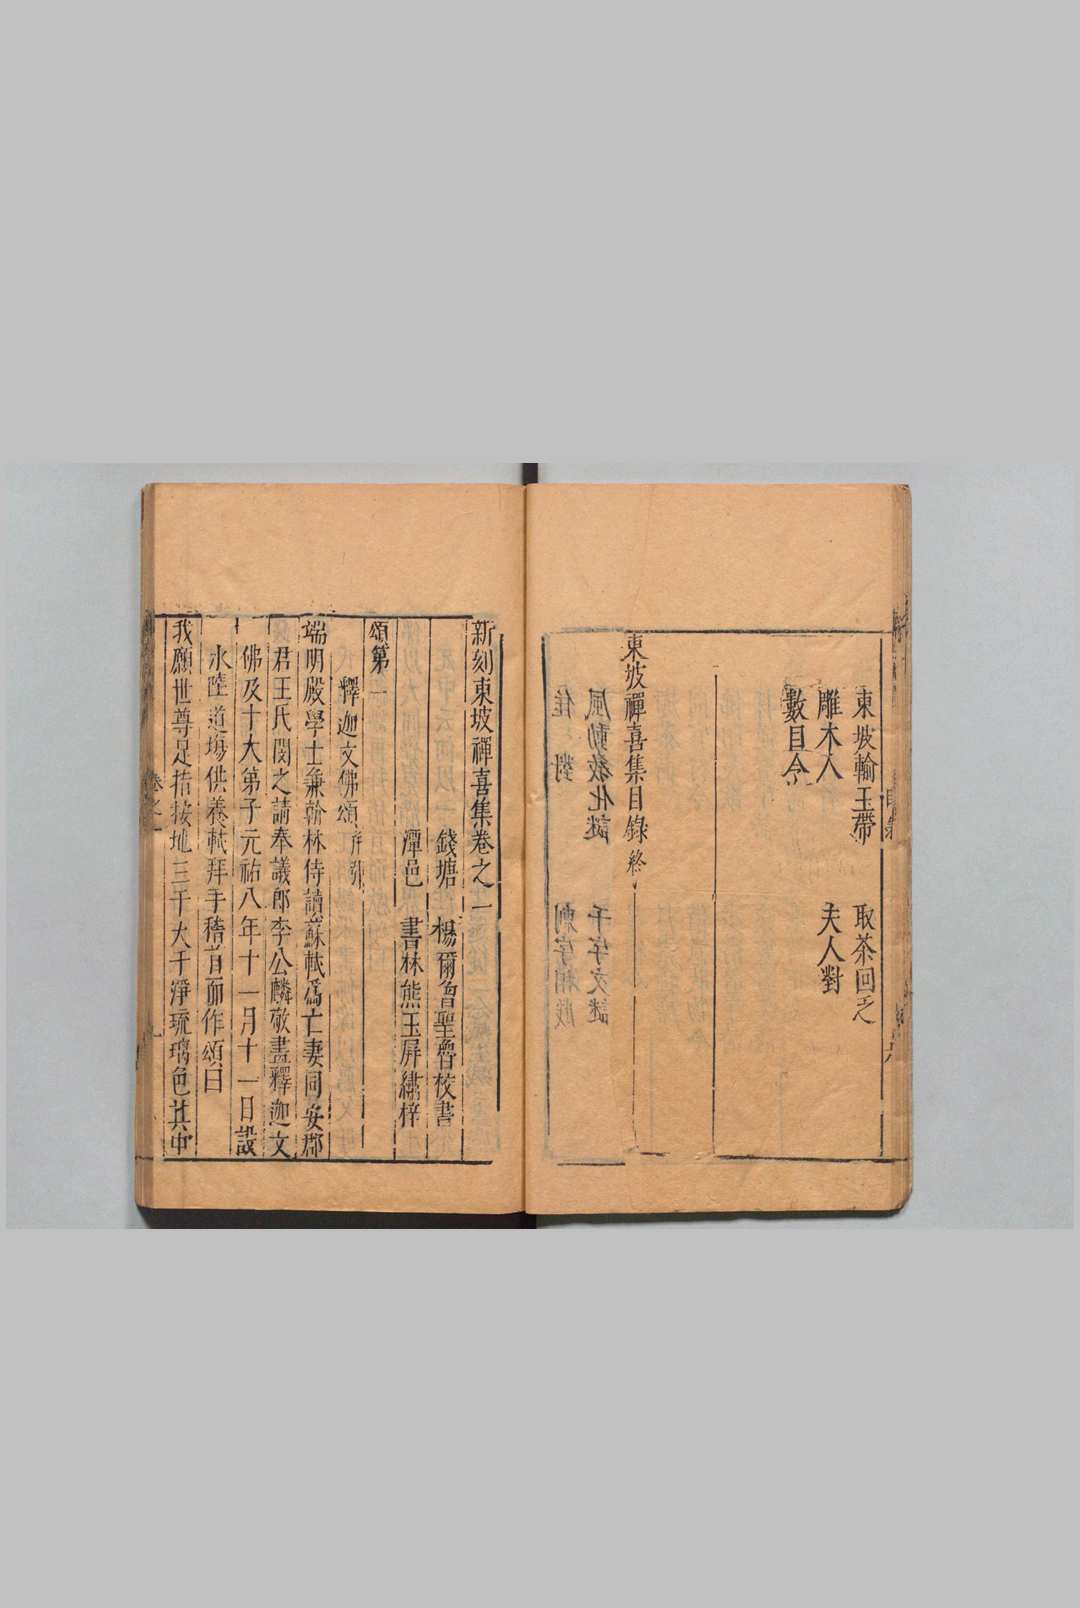 東坡輸玉帶 取茶回乏
雕木人 夫人對
數目令
東坡禪喜集目錄 終
新刻東坡禪喜集卷之一
錢塘 楊爾曾聖魯校書
潭邑 書林熊玉屏繡梓
頌第一
釋迦文佛頌
端明殿學士兼翰林侍讀蘇軾爲亡妻同安郡
君王氏閏之請奉議郎李公麟敬畫釋迦文
佛及十大弟子元祐八年十一月十一日設
水陸道塲供養軾拜手稽首而作頌曰
我願世尊足指按地三千大千淨琉璃色其中
卷之一